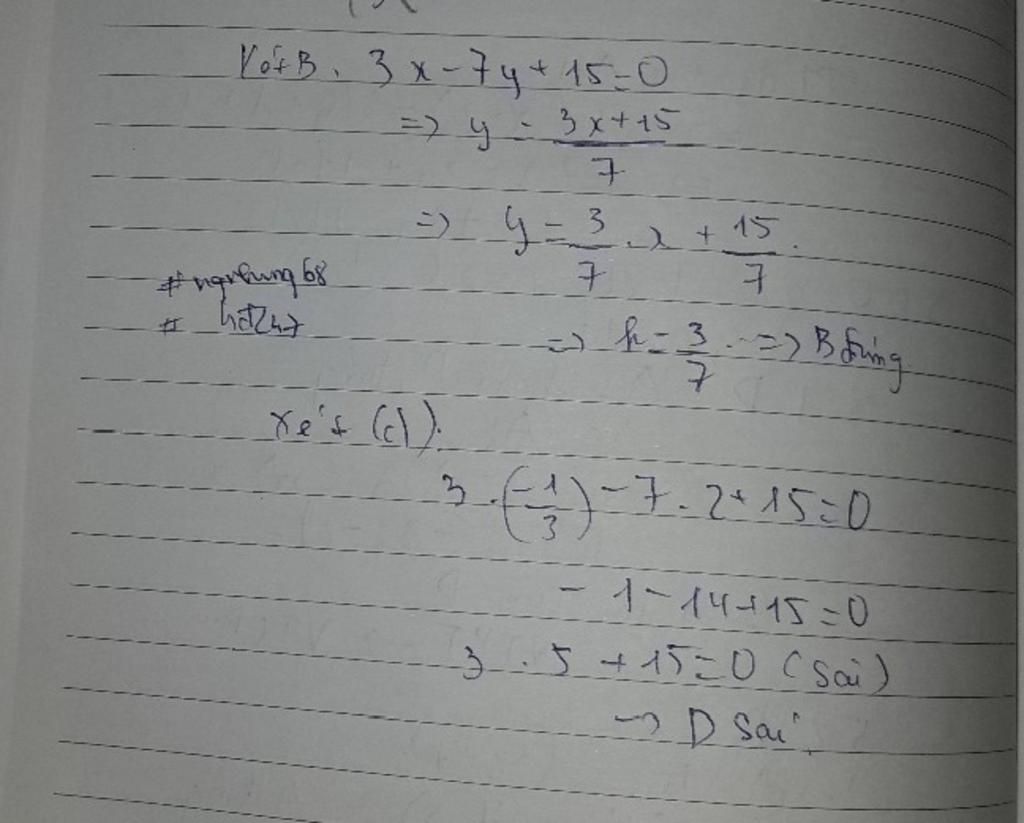 Với B. 3x - 7y + 15 = 0
=> y = \frac{3x+15}{7}
=> y = \frac{3}{7} . x + \frac{15}{7}.
=> k = \frac{3}{7}. => B đúng
Xét (d):
3 . (\frac{-1}{3}) - 7 . 2 + 15 = 0
- 1 - 14 + 15 = 0
3 . 5 + 15 = 0 (Sai)
-> D sai.